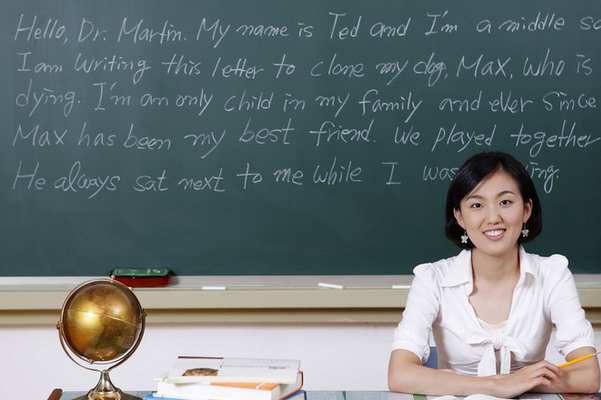 Hello, Dr. Martin. My name is Ted and I'm a middle sc
I am writing this letter to clone my dog, Max, who is
dying. I'm an only child in my family and ever since
Max has been my best friend. We played together
He always sat next to me while I was